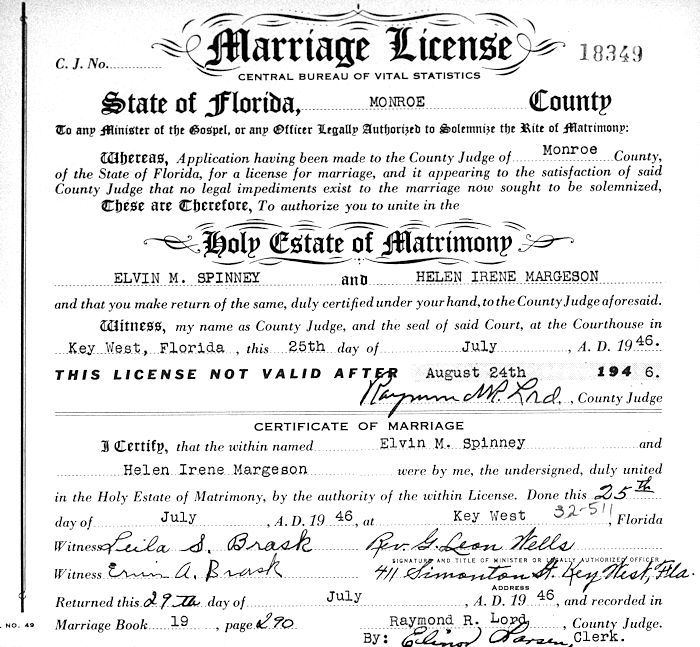 Marriage License
C. J. No.
18349
CENTRAL BUREAU OF VITAL STATISTICS
State of Florida, MONROE County
To any Minister of the Gospel, or any Officer Legally Authorized to Solemnize the Rite of Matrimony:
Whereas, Application having been made to the County Judge of Monroe County,
of the State of Florida, for a license for marriage, and it appearing to the satisfaction of said
County Judge that no legal impediments exist to the marriage now sought to be solemnized,
These are Therefore, To authorize you to unite in the
Holy Estate of Matrimony
ELVIN M. SPINNEY and HELEN IRENE MARGESON
and that you make return of the same, duly certified under your hand, to the County Judge aforesaid.
Witness, my name as County Judge, and the seal of said Court, at the Courthouse in
Key West, Florida, this 25th day of July, A. D. 19 46.
THIS LICENSE NOT VALID AFTER August 24th 194 6.
Raymond R. Lord, County Judge
CERTIFICATE OF MARRIAGE
I Certify, that the within named Elvin M. Spinney and
Helen Irene Margeson were by me, the undersigned, duly united
in the Holy Estate of Matrimony, by the authority of the within License. Done this 25th
day of July, A. D. 19 46, at Key West 32-511, Florida
Witness Leila S. Brask Rev. G. Leon Wells
SIGNATURE AND TITLE OF MINISTER OR LEGALLY AUTHORIZED OFFICER
Witness Ervin A. Brask 411 Simonton St. Key West, Fla.
ADDRESS
Returned this 29th day of July, A. D. 19 46, and recorded in
L NO. 49
Marriage Book 19, page 290 Raymond R. Lord, County Judge.
By: Elinor Larsen, Clerk.